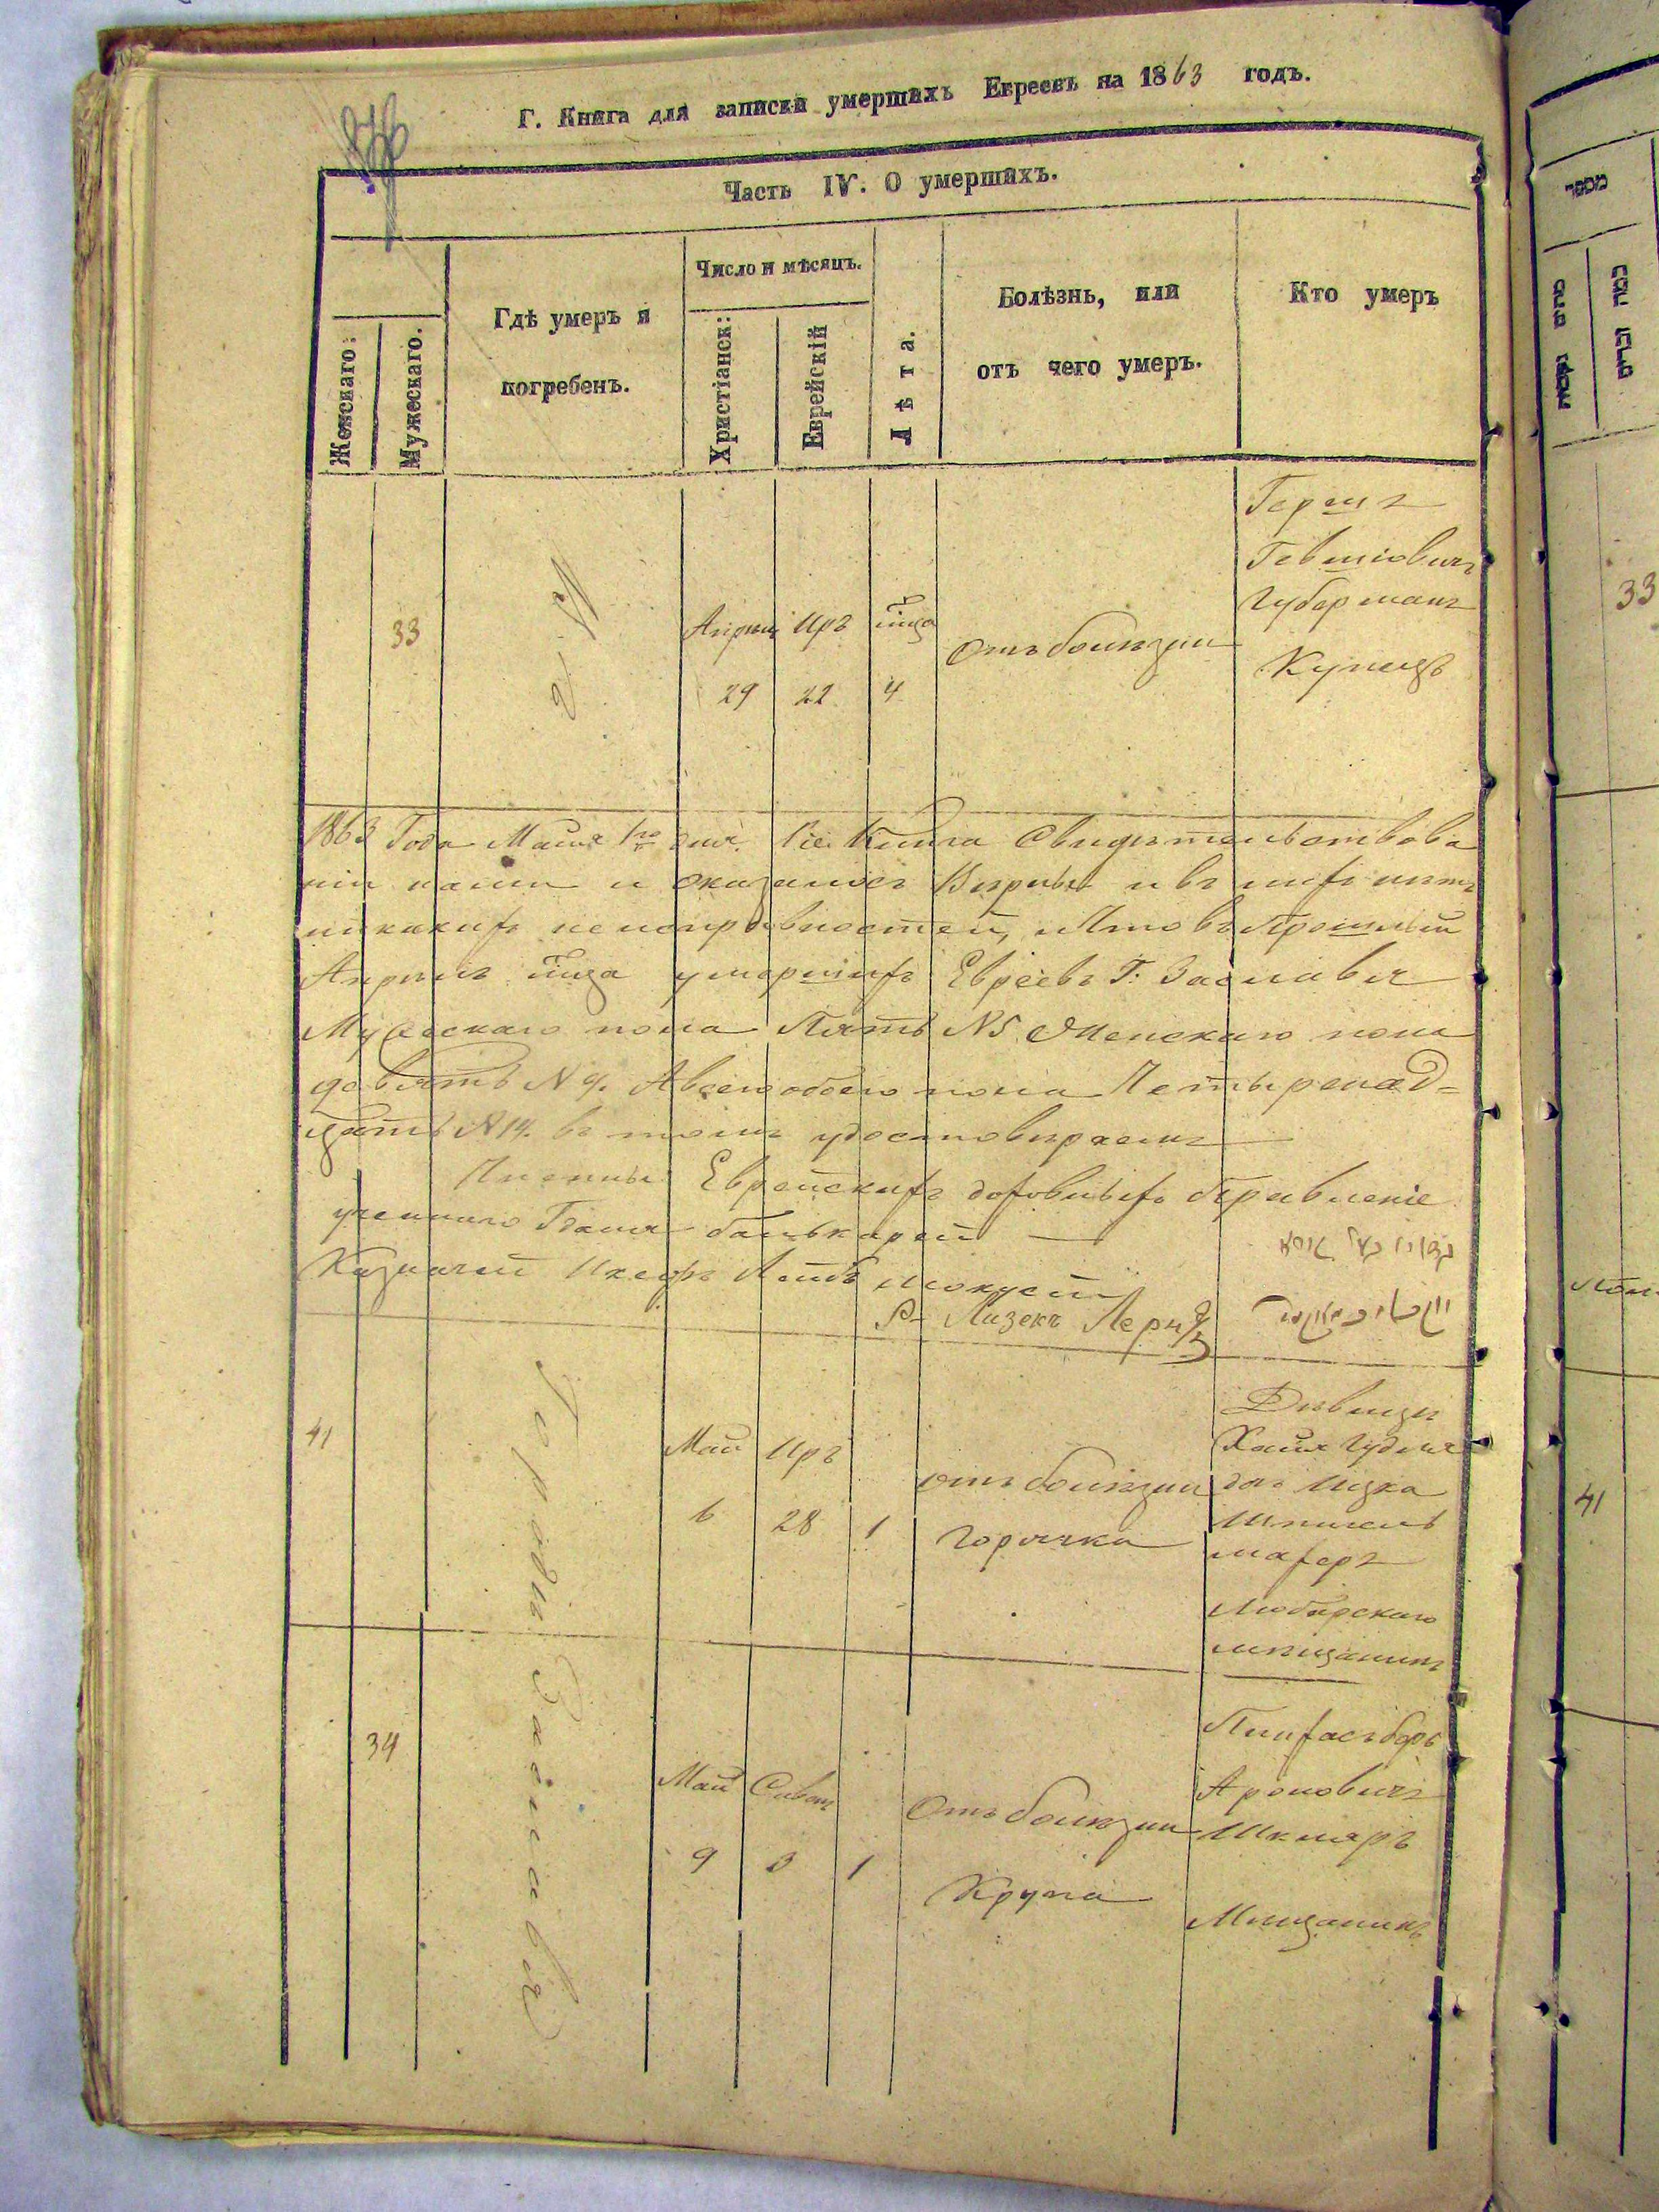 Г. Книга для записки умершихъ Евреевъ на 1863 годъ.
Часть IV. О умершихъ.
Женскаго:
Мужескаго.
Гдѣ умеръ и
погребенъ.
Число и мѣсяцъ.
Христіанск:
Еврейскій
Лѣта.
Болѣзнь, или
отъ чего умеръ.
Кто умеръ
33
Апрѣль
29
Иръ
22
м҃ца
4
Отъ болѣзни
Гершъ
Губерманъ
Купецъ
1863 Года Маия 1го дня. Сіе Книга Свидѣтельствова
ніи нами и оказалось Вѣрны и въ нихъ нѣтъ
никакихъ неисправностей, и что въ прошлый
Апрѣлъ м҃ца умершихъ Евреевъ Г: Заславля
Мужескаго пола Пять №5 Женскаго пола
девять №9. А всего обоего пола Четыренад=
цать №14. въ томъ удостовѣраемъ
Члены Еврейскихъ духовныхъ Правленіе
ученнаго
Казначей
Лизекъ Лернеръ
41
Городъ Заславля
Май
6
Иръ
28
1
отъ болѣзни
горячка
Дѣвица
Хаия
Ицка
Шпилъ
махеръ
Любарскаго
мѣщанинъ
34
Май
9
Сивонъ
3
1
Отъ болѣзни
Крупа
Пинхасъ беръ
Ароновичъ
Шкляръ
Мѣщанинъ
33
41